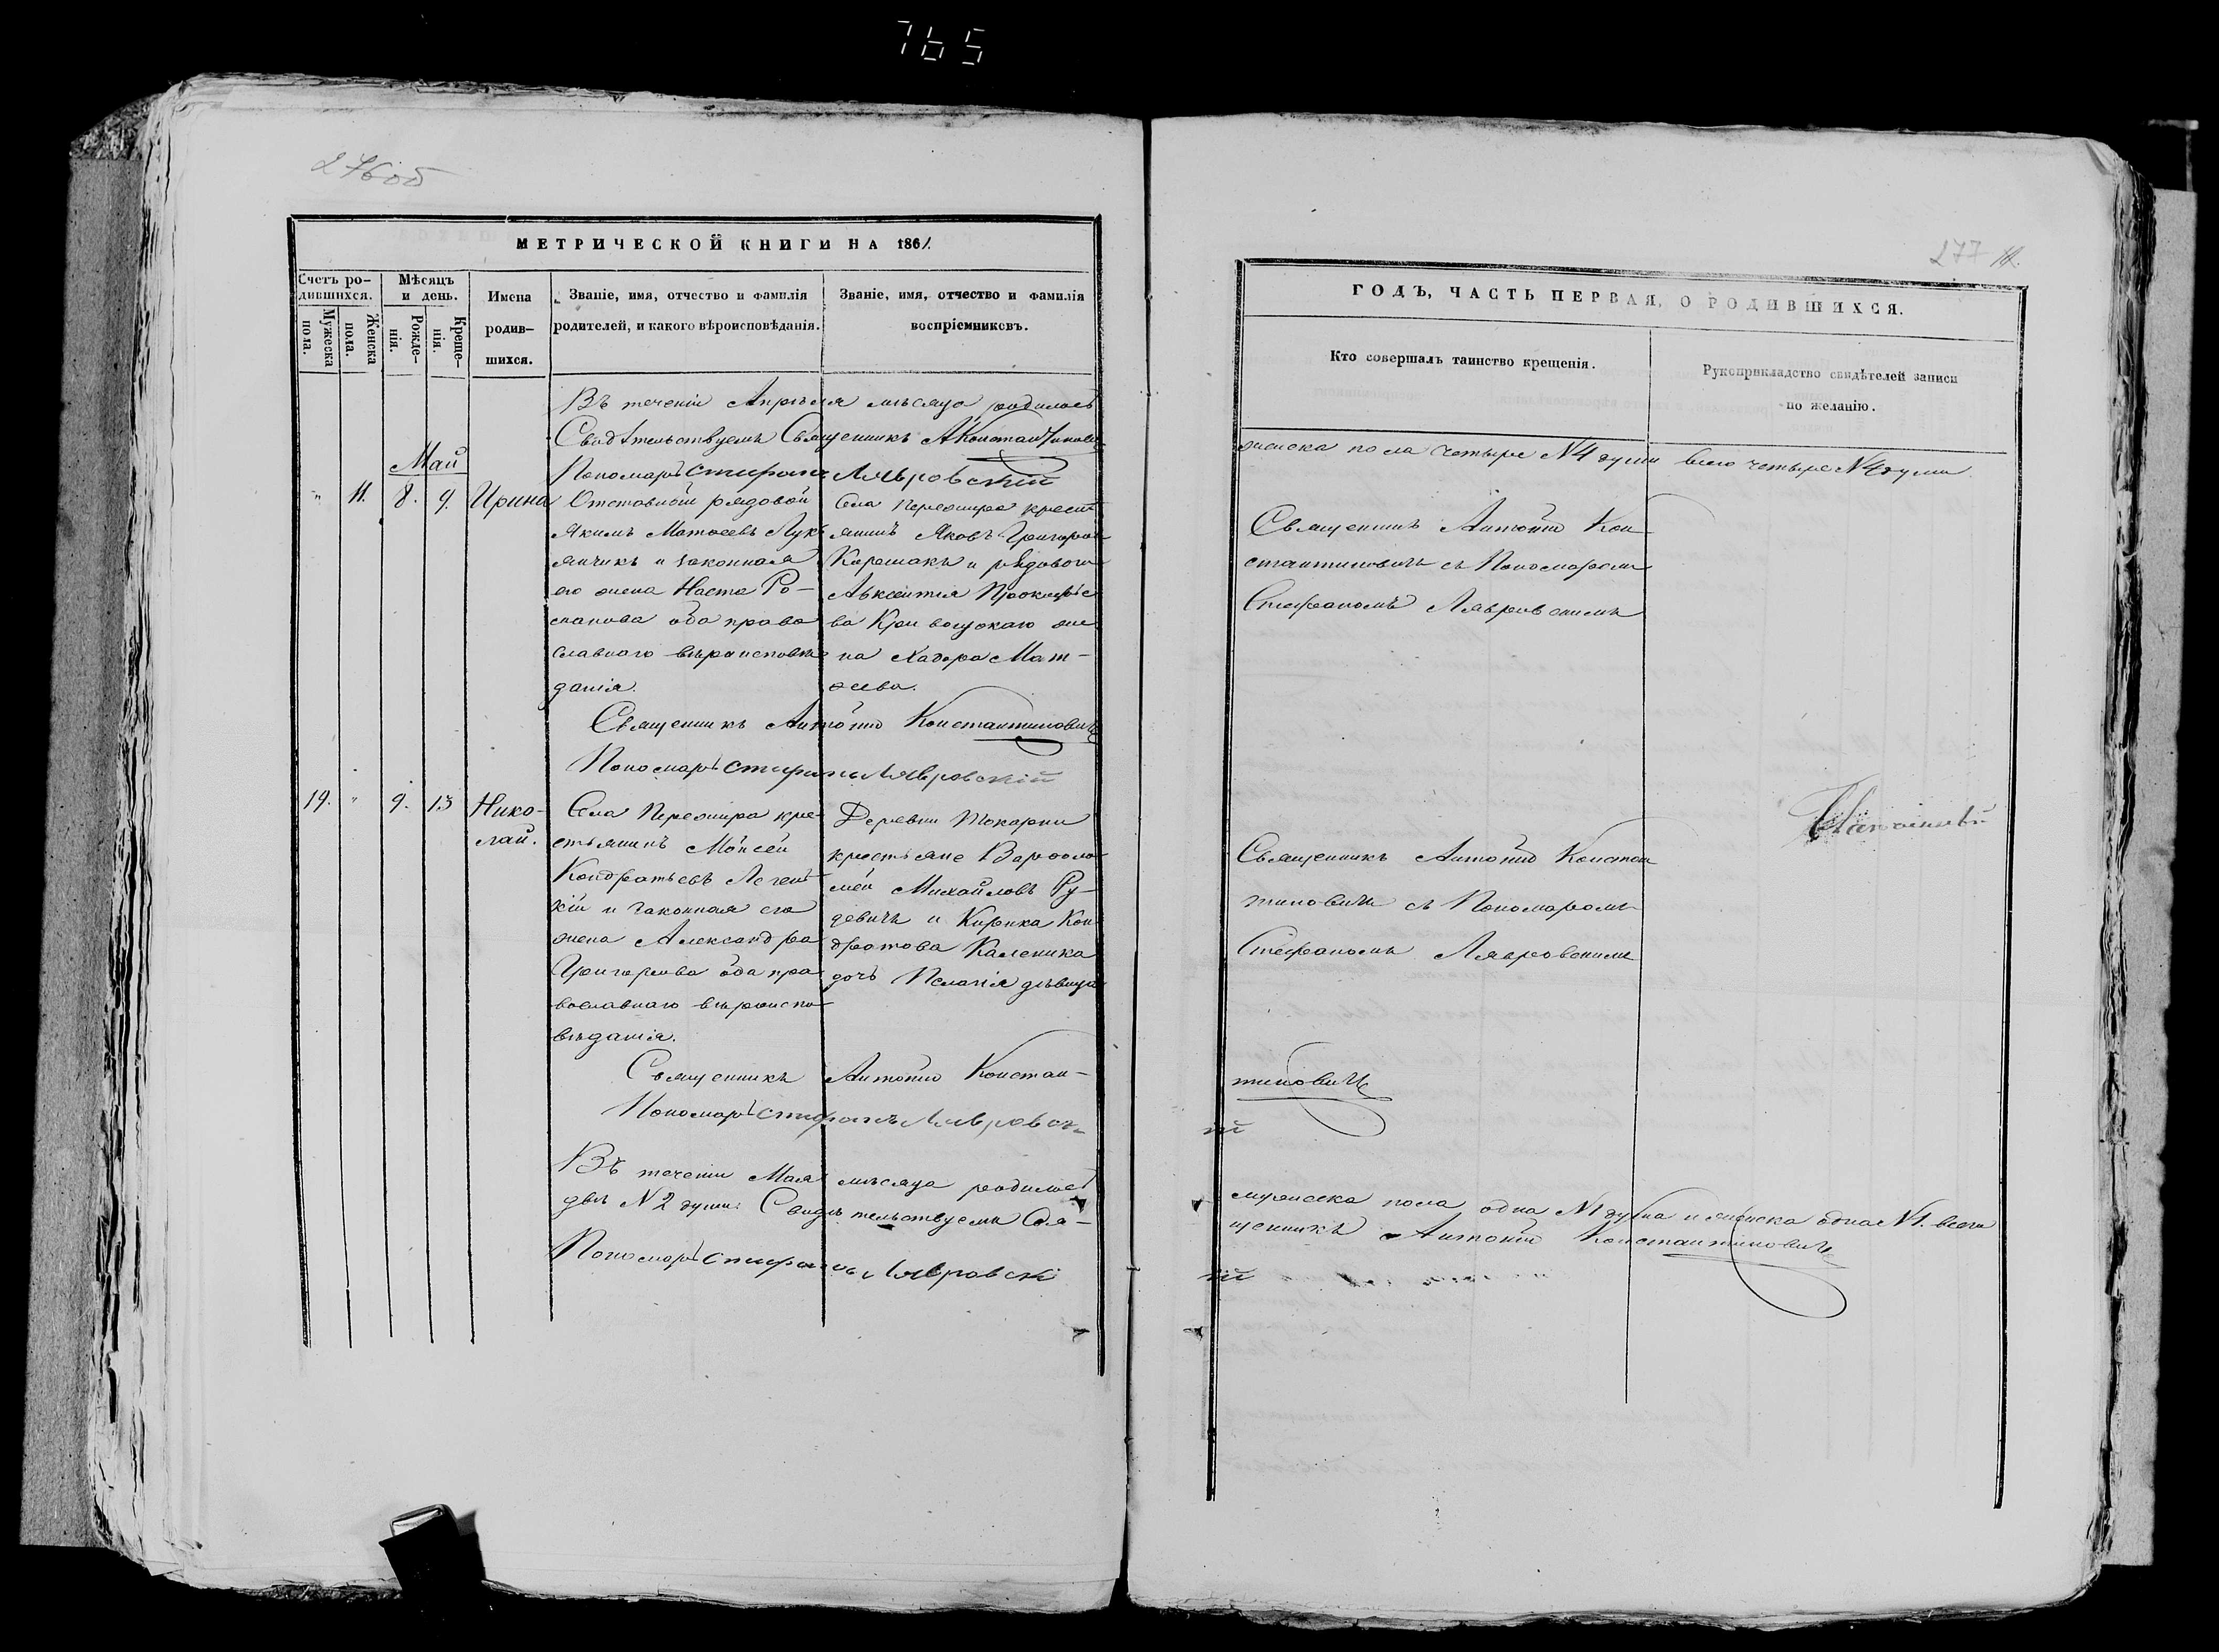 765
276об
МЕТРИЧЕСКОЙ КНИГИ НА 1861.
Счетъ ро-
дившихся.
Мужеска
пола.
Женска
пола.
Мѣсяцъ
и день.
Рожде-
нія.
Креще-
нія.
Имена
родив-
шихся.
Званіе, имя, отчество и фамилія
родителей, и какого вѣроисповѣданія.
Званіе, имя, отчество и фамилія
воспріемниковъ.
Въ теченіи Апрѣля мѣсяца родилось
Свидѣтельствуемъ Священникъ А Константинови
Май
Пономарь Стефанъ Лявровскій
" 11. 8. 9. Ирина
Отставной рядовой
Якимъ Матѳеевъ Лук
янчикъ и законная
его жена Наста Ро-
манова оба право
славнаго вѣроисповѣ
данія.
Села Пережира крест
янинъ Яковъ Григоров
Карешакъ и рядового
Авксентія Прокофье
ва Кривоцокаго же
на Хадора Мат-
ѳеева.
Священникъ Антоній Константиновичъ
Пономарь Стефанъ Лявровскій
19. " 9. 13 Нико-
лай.
Села Пережира кре-
стьянинъ Мойсей
Кондратьевъ Леген
кій и законная его
жена Александра
Григорьева оба пра
вославнаго вѣроиспо-
вѣданія.
Деревни Токарни
крестьяне Варфоло
мей Михайловъ Ру-
девичъ и Кирика Кон
дратова Каленика
дочь Пелагія дѣвица
Священникъ Антоній Констан-
Пономарь Стефанъ Лявровск
Въ теченіи Мая мѣсяца родилось
двѣ N 2 души. Свидѣтельствуемъ Свя-
Пономарь Стефанъ Лявровскі
277
ГОДЪ, ЧАСТЬ ПЕРВАЯ, О РОДИВШИХСЯ.
Кто совершалъ таинство крещенія.
Рукоприкладство свидѣтелей записи
по желанію.
женска пола четыре N4 души всего четыре N4 души
Священникъ Антоній Кон
стантиновичъ съ Пономаремъ
Стефаномъ Лявровскимъ
Священникъ Антоній Констан
тиновичъ съ Пономаромъ
Стефаномъ Лявровскимъ
тиновичъ
ій
мужеска пола одна N1 душа и женска одна N1. всего
щенникъ Антоній Константиновичъ
ій